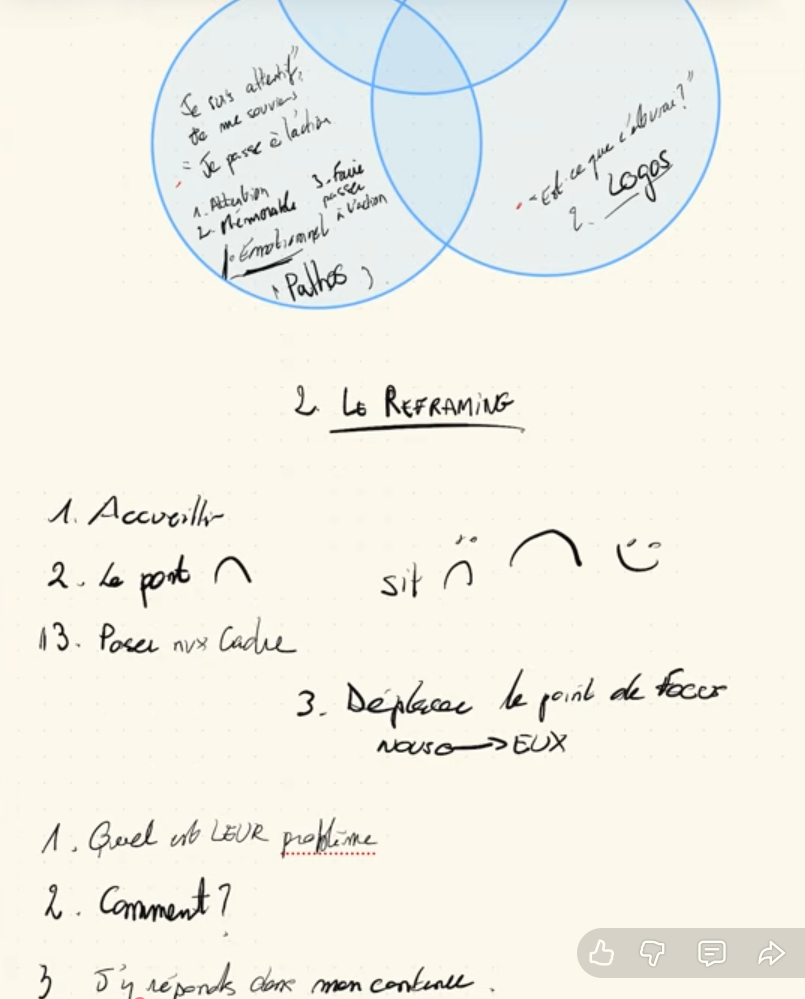 Je suis attentif"
Je me souviens
= Je passe à l'action
1. Attention
2. Mémorable
3. Faire
passer
à l'action
1. Emotionnel
(Pathos)
"Est-ce que c'est vrai?"
2. Logos
2. LE REFRAMING
1. Accueillir
2. Le pont
sit
13. Poser nvx Cadre
3. Déplacer le point de Focus
NOUS → EUX
1. Quel est LEUR problème
2. Comment?
3 J'y réponds dans mon contenu.